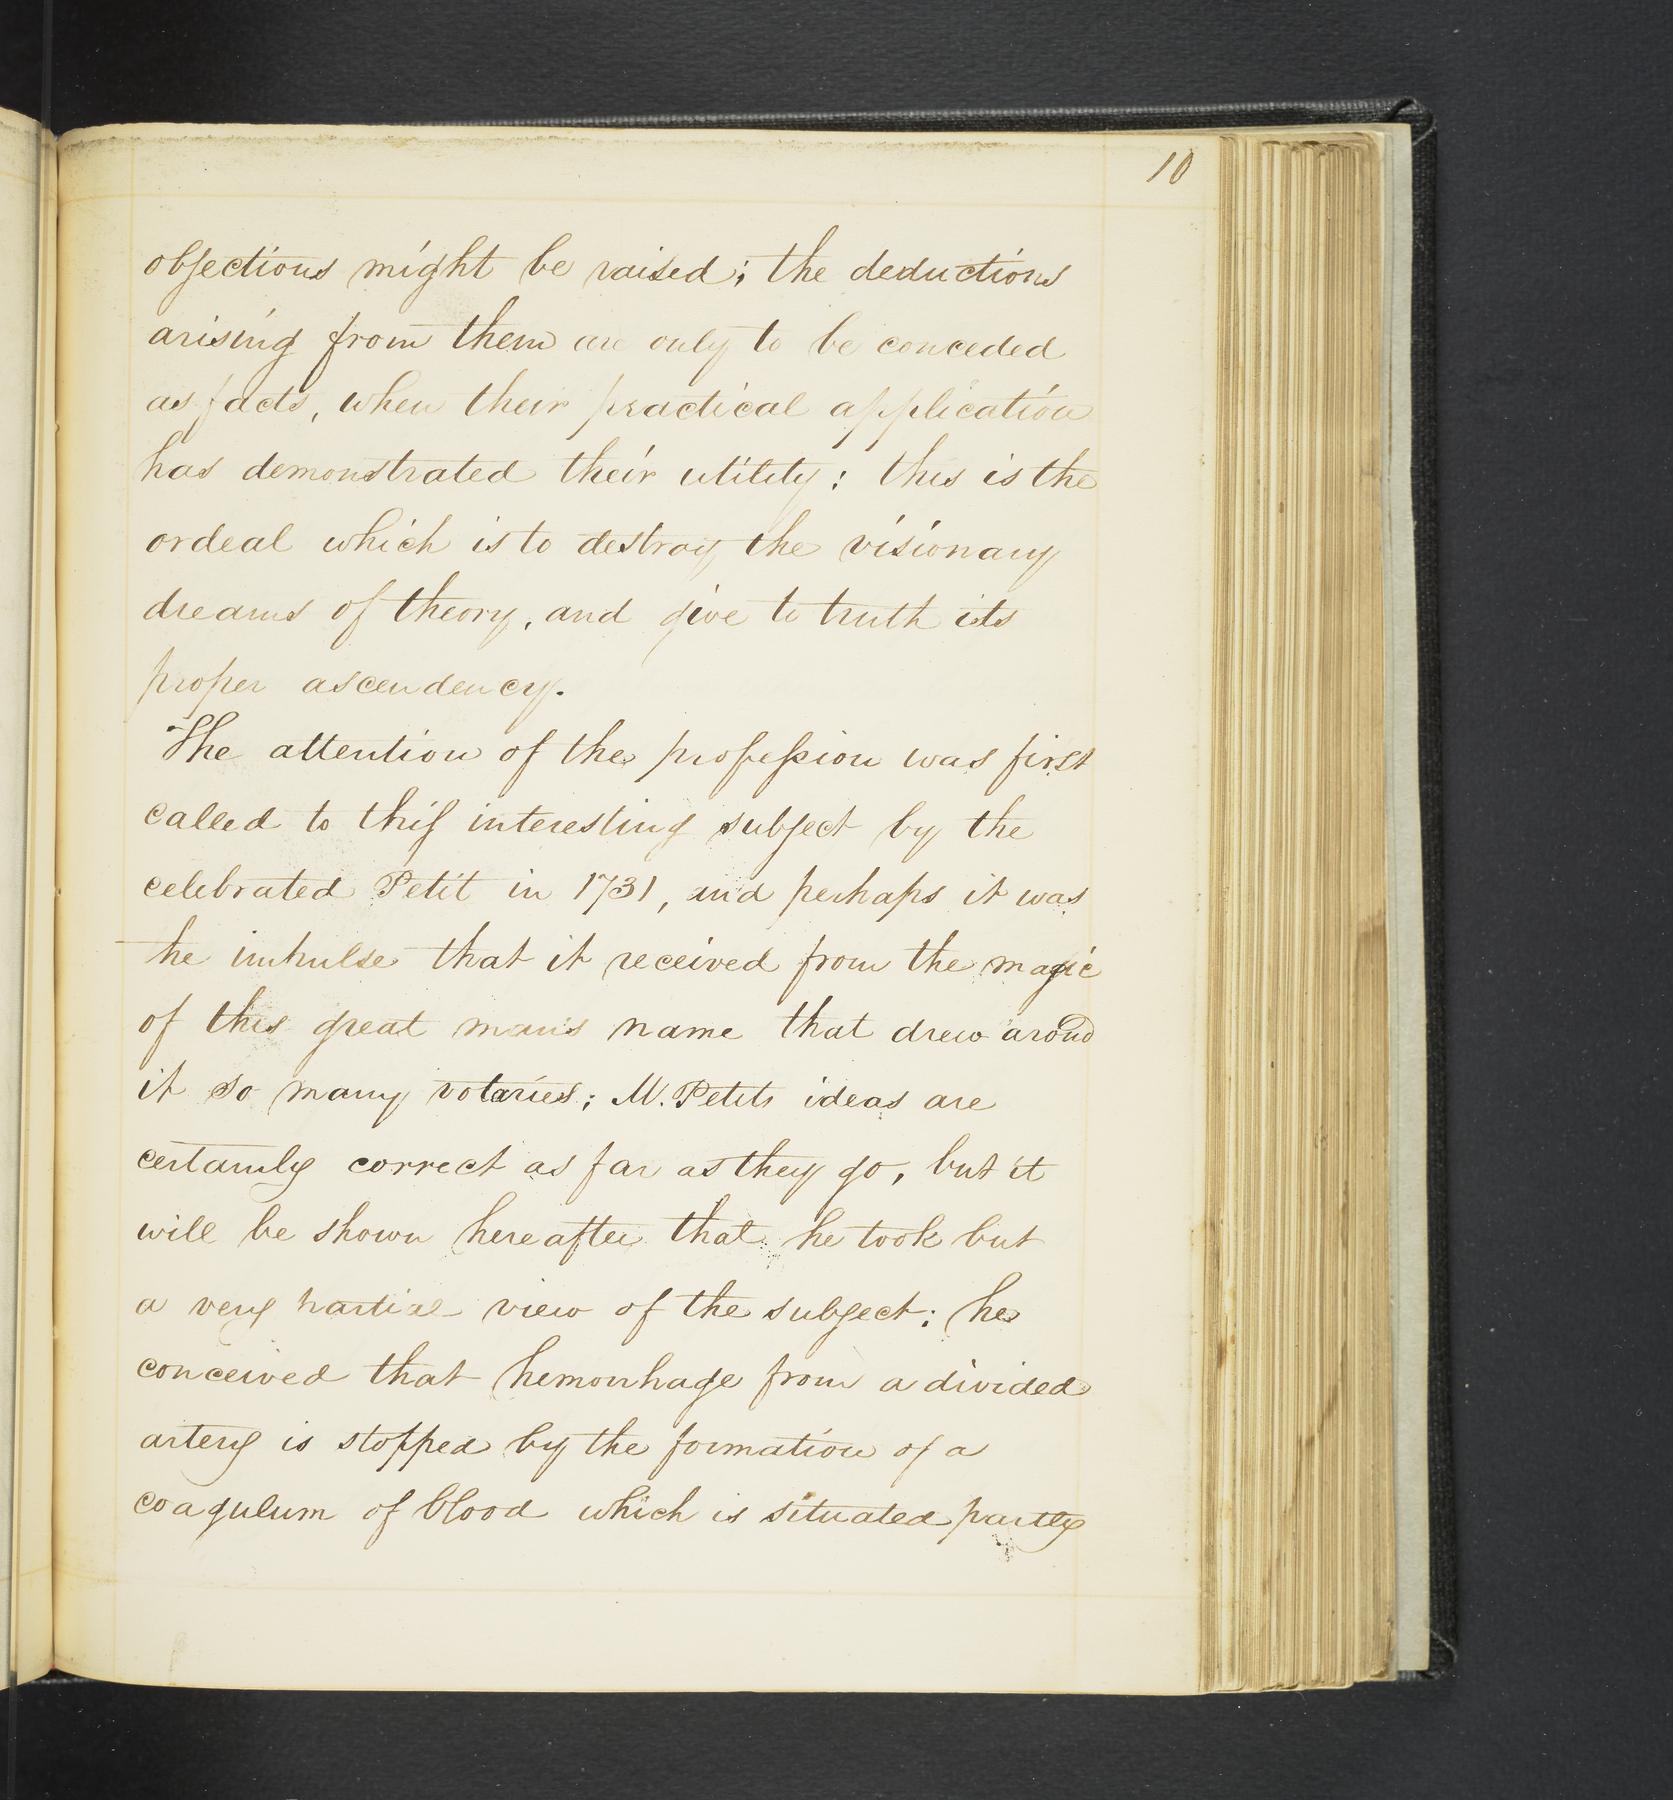 10
objections might be raised; the deductions
arising from them are only to be conceded
as facts, when their practical application
has demonstrated their utility: this is the
ordeal which is to destroy the visionary
dreams of theory, and give to truth its
proper ascendency.
The attention of the profeſsion was first
called to thiſ interesting subject by the
celebrated Petit in 1731, and perhaps it was
the impulse that it received from the magic
of this great man's name that drew around
it so many votaries; M. Petits ideas are
certainly correct as far as they go, but it
will be shown hereafter that he took but
a very partial view of the subject: he
conceived that hemorrhage from a divided
artery is stopped by the formation of a
coagulum of blood which is situated partly